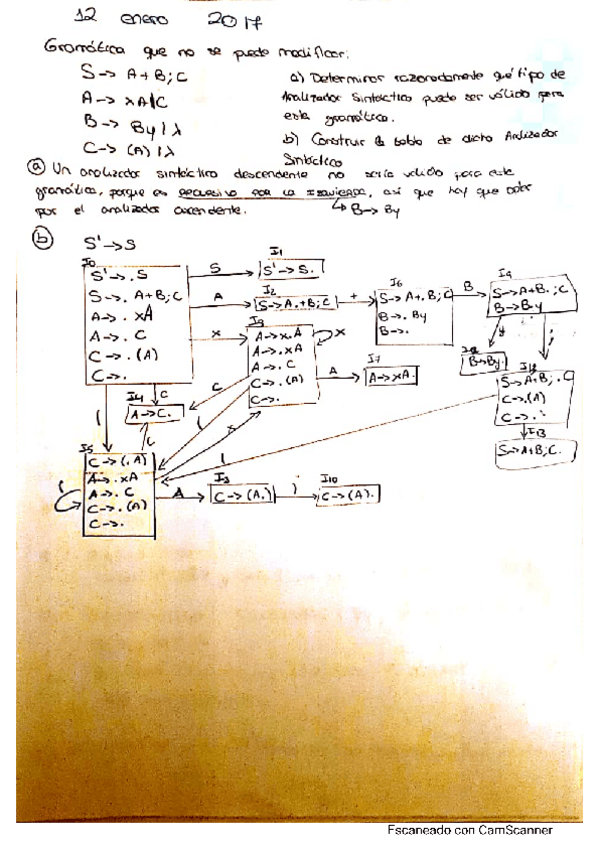 12 enero 2017
Gramática que no se puede modificar:
S -> A + B; C
A -> xA|C
B -> By | λ
C -> (A) | λ
a) Determinar razonadamente qué tipo de
Analizador Sintáctico puede ser válido para
esta gramática.
b) Construir la tabla de dicho Analizador
Sintáctico
a Un analizador sintáctico descendente no sería válido para esta
gramática, porque es recursiva por la izquierda, así que hay que optar
por el analizador ascendente. ↳ B -> By
b S' -> S
I0
S' -> . S
S -> . A+B; C
A -> . xA
A -> . C
C -> . (A)
C -> .
S
I1
S' -> S.
A
I2
S -> A.+B; C
+
I6
S -> A+.B; C
B -> . By
B -> .
B
I9
S -> A+B. ; C
B -> B.y
x
I3
A -> x.A
A -> . xA
A -> . C
C -> . (A)
C -> .
x
A
I7
A -> xA.
y
B -> By.
;
S -> A+B; . C
C -> .(A)
C -> .
I13
S -> A+B; C.
C
I4
A -> C.
C
(
(
x
(
C
I5
C -> (. A)
A -> . xA
A -> . C
C -> . (A)
C -> .
(
A
C -> (A.)
)
I10
C -> (A).
Escaneado con CamScanner